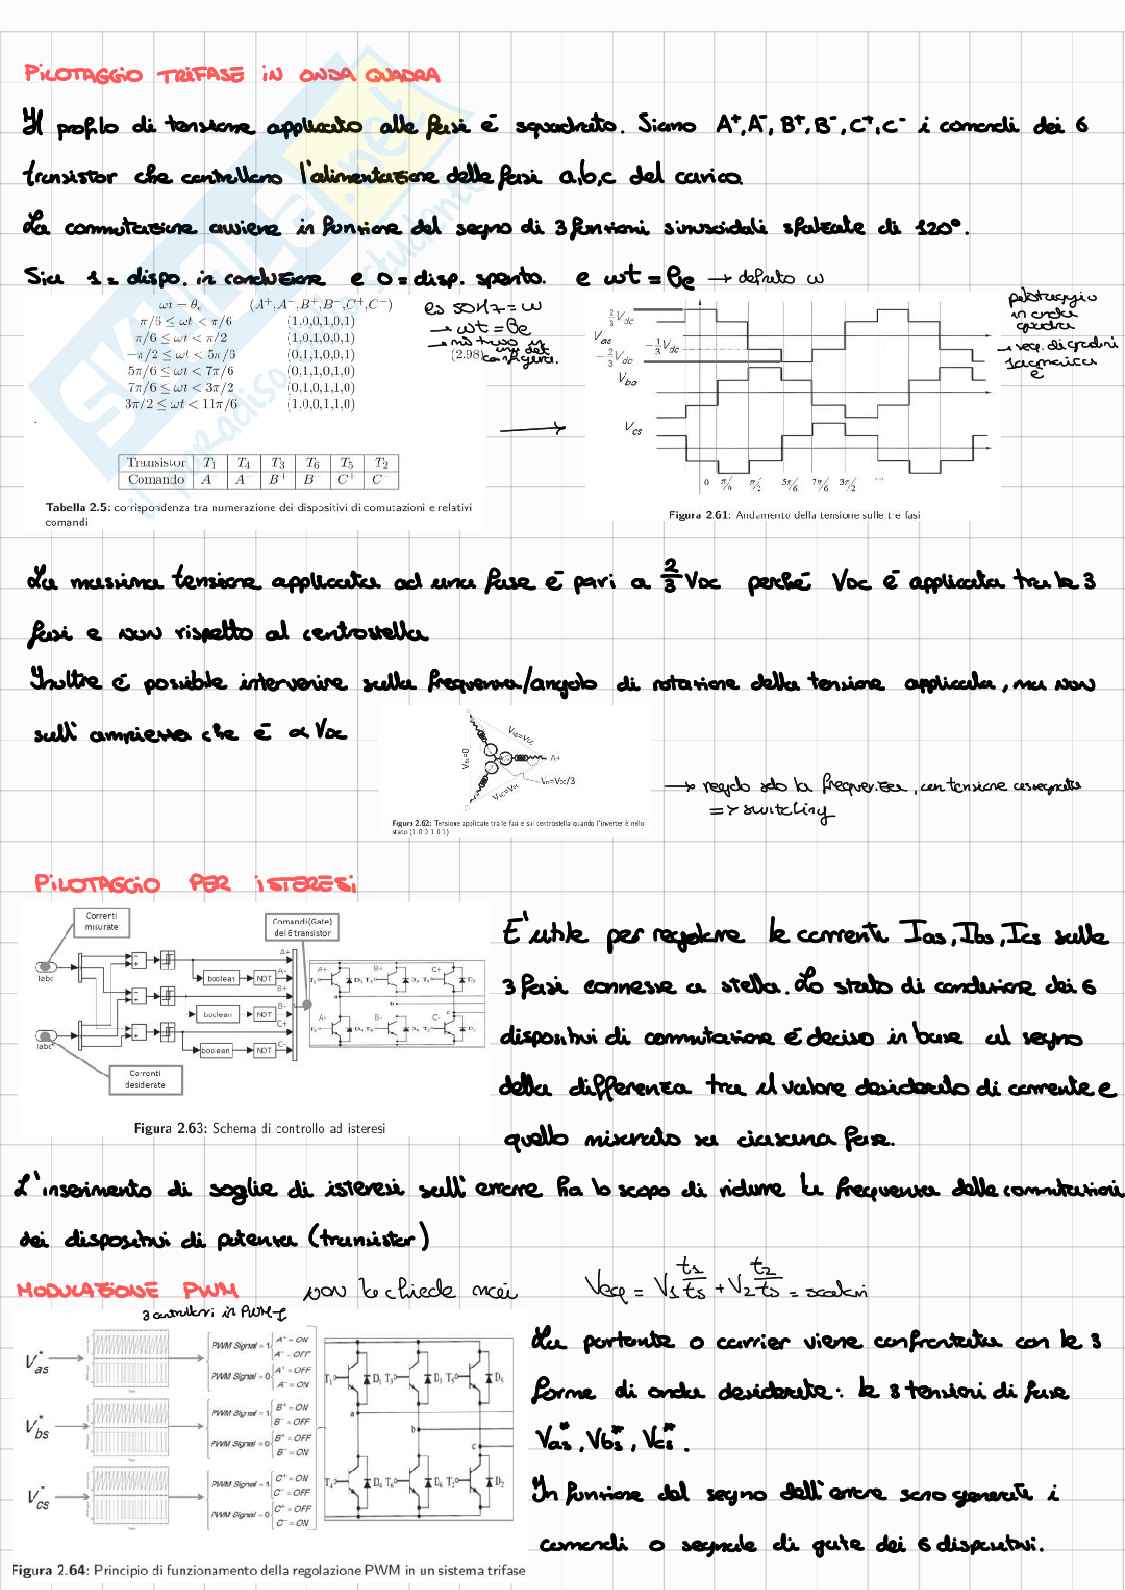 PILOTAGGIO TRIFASE IN ONDA QUADRA
Il profilo di tensione applicato alle fasi è squadrato. Siano A+,A-,B+,B-,C+,C- i comandi dei 6
transistor che controllano l'alimentazione delle fasi a,b,c del carico.
La commutazione avviene in funzione del segno di 3 funzioni sinusoidali sfalzate di 120°.
Sia 1 = dispo. in conduzione e 0 = disp. spento. e ωt = θe → definito ω
ωt = θe (A+,A-,B+,B-,C+,C-)
π/6 ≤ ωt < π/6 (1,0,0,1,0,1)
π/6 ≤ ωt < π/2 (1,0,1,0,0,1)
−π/2 ≤ ωt < 5π/6 (0,1,1,0,0,1)
5π/6 ≤ ωt < 7π/6 (0,1,1,0,1,0)
7π/6 ≤ ωt < 3π/2 (0,1,0,1,1,0)
3π/2 ≤ ωt < 11π/6 (1,0,0,1,1,0)
(2.98)
es 50Hz = ω
→ ωt = θe
→ mi trovo in una det configuraz.
Transistor T1 T4 T3 T6 T5 T2
Comando A A- B+ B C+ C
Tabella 2.5: corrispondenza tra numerazione dei dispositivi di comutazioni e relativi
comandi
2/3 Vdc
Vas
−1/3 Vdc
−2/3 Vdc
Vbs
Vcs
0 π/6 π/2 5π/6 7π/6 3π/2 ...
Figura 2.61: Andamento della tensione sulle tre fasi
pilotaggio
in onda
quadra
La massima tensione applicata ad una fase è pari a 2/3 VDC perché VDC è applicata tra le 3
fasi e non rispetto al centrostella
Inoltre è possibile intervenire sulla frequenza/angolo di rotazione della tensione applicata, ma non
sull'ampiezza che è ∝ VDC
VBC=0
A+
Vn=VDC/3
Figura 2.62: Tensione applicate tra le fasi e sul centrostella quando l'inverter è nello
stato (1.0.0.1.0.1)
→ regolo solo la frequenza, con tensione assegnata
=> switching
PILOTAGGIO PER ISTERESI
Correnti
misurate
Comandi(Gate)
dei 6 transistor
Iabc
boolean NOT
boolean NOT
boolean NOT
A+
A-
B+
B-
C+
C-
Iabc*
Correnti
desiderate
Figura 2.63: Schema di controllo ad isteresi
E' utile per regolare le correnti Ias, Ibs, Ics sulle
3 fasi connesse a stella. Lo stato di conduzione dei 6
dispositivi di commutazione è deciso in base al segno
della differenza tra il valore desiderato di corrente e
quello misurato su ciascuna fase.
L'inserimento di soglie di isteresi sull'errore ha lo scopo di ridurre la frequenza delle commutazioni
dei dispositivi di potenza (transistor)
MODULAZIONE PWM non lo chiede mai Veq = V1 t1/ts + V2 t2/ts = scalari
3 controllori in PWM-I
V*as
V*bs
V*cs
PWM Signal = 1 A+ = ON
A- = OFF
PWM Signal = 0 A+ = OFF
A- = ON
PWM Signal = 1 B+ = ON
B- = OFF
PWM Signal = 0 B+ = OFF
B- = ON
PWM Signal = 1 C+ = ON
C- = OFF
PWM Signal = 0 C+ = OFF
C- = ON
T1 D1 T3 D3 T5 D5
a
b
c
T4 D4 T6 D6 T2 D2
Figura 2.64: Principio di funzionamento della regolazione PWM in un sistema trifase
La portante o carrier viene confrontata con le 3
forme di onda desiderate: le 3 tensioni di fase
Vas*, Vbs*, Vcs*.
In funzione del segno dell'errore sono generati i
comandi o segnale di gate dei 6 dispositivi.